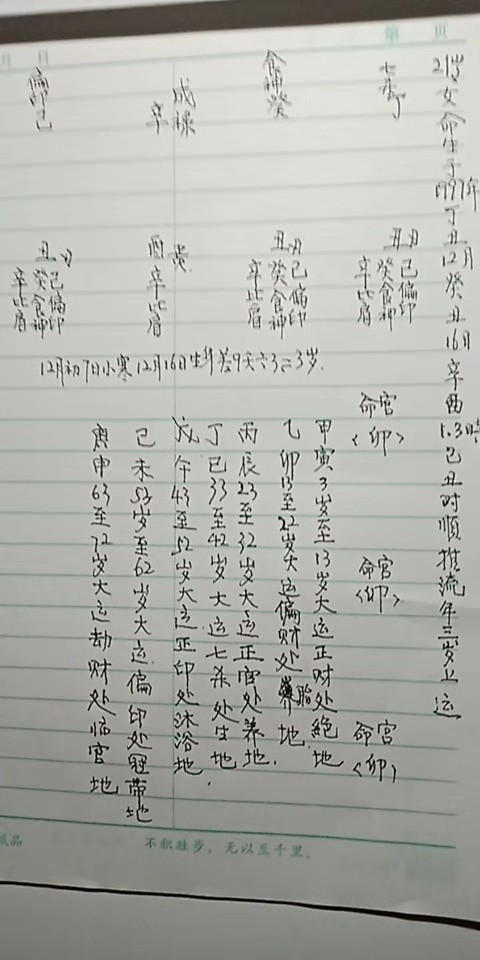 21岁女命生于1997年丁丑12月癸丑16日辛酉1.3時己丑时順推流年三岁上运
七杀丁
丑月
己偏印
癸食神
辛比肩
命宫
<卯>
命宫
<卯>
命宫
<卯>
食神癸
丑月
己偏印
癸食神
辛比肩
辛
酉
辛比肩
偏印己
丑月
己偏印
癸食神
辛比肩
12月初7日小寒12月16日生年差9天
甲寅3岁至13岁大运正财处絕地
乙卯13至22岁大运偏财处胎地.
丙辰23至32岁大运正官处养地.
丁巳33至42岁大运七杀处生地.
戊午43至52岁大运正印处沐浴地
己未53岁至62岁大运偏印处冠带地
庚申63至72岁大运劫财处临官地
第 页
月 日
纸品
不积跬步，无以至千里。